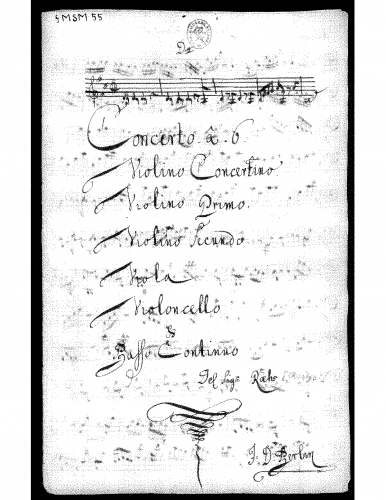 4 MSM 55
Concerto à. 6
Violino Concertino
Violino Primo.
Violino Secundo
Viola
Violoncello
&
Basso Continuo
Del Sigr
J. D. Berlin